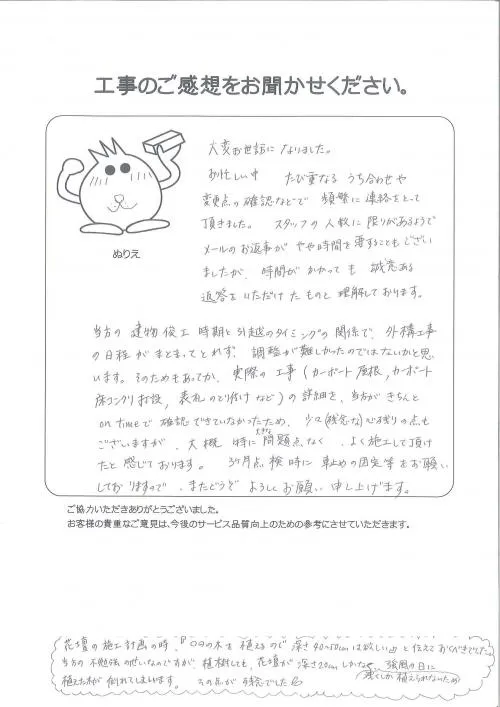 工事のご感想をお聞かせください。
大変お世話になりました。
お忙しい中 たび重なる うち合わせや
変更点の確認などで 頻繁に連絡をとって
頂きました。 スタッフの人数に限りがあるようで
メールのお返事が やや時間を要することもござい
ましたが、時間が かかっても 誠意ある
返答を いただけたものと 理解しております。
ぬりえ
当方の 建物 竣工 時期と 引越のタイミングの 関係で、外構工事
の日程が まとまってとれず、調整が難しかったのではないかと思
います。そのためもあってか、実際の 工事 (カーポート屋根、カーポート
床コンクリ打設、表札のとり付けなど) の詳細を、当方が きちんと
on timeで 確認できていなかったため、少々(残念な)心残りの点も
ございますが、大概 特に大きな問題点なく、よく施工して頂け
たと感じております。 3ヶ月点検時に 車止めの固定等をお願い
しておりますので、またどうぞ よろしくお願い 申し上げます。
ご協力いただきありがとうございました。
お客様の貴重なご意見は、今後のサービス品質向上のための参考にさせていただきます。
花壇の施工計画の時、『〇〇の木を 植えるので 深さ40~50cmは欲しい』と伝えておくべきでした。
当方の不勉強のせいなのですが、植樹しても、花壇が 深さ20cmしかなく、強風の日に
浅くしか植えられないため
植えた木が 倒れてしまいます。 その点が 残念でした